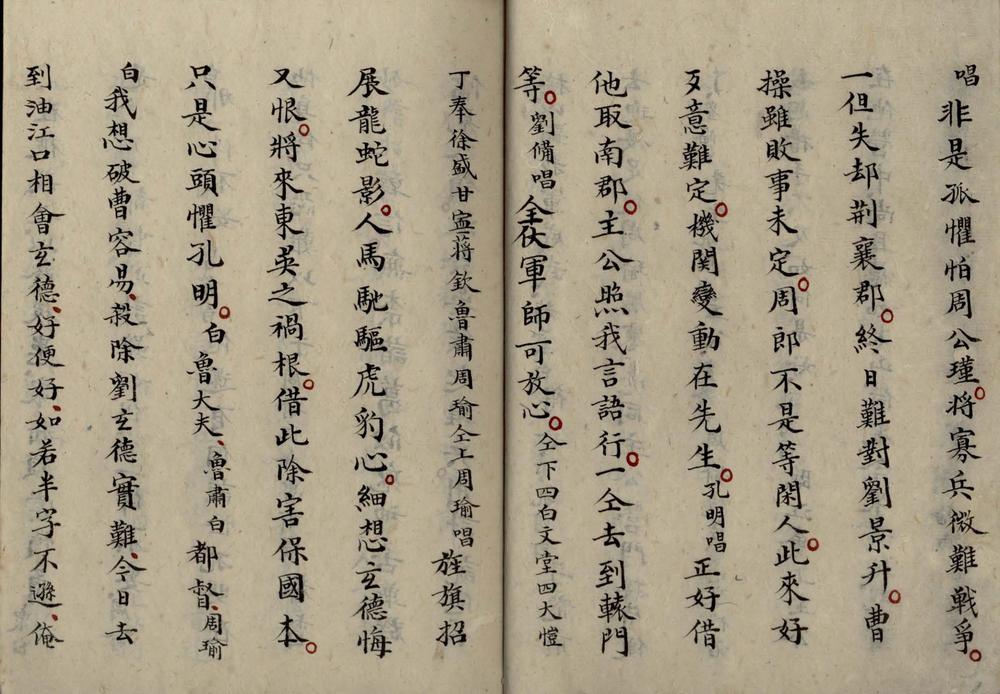 唱非是孤懼怕周公瑾。将寡兵微難戰爭。
一但失却荆襄郡。終日難對劉景升。曹
操雖敗事未定。周郎不是等閑人。此來好
歹意難定。機関變動在先生。孔明唱正好借
他取南郡。主公照我言語行。一仝去到轅門
等。劉備唱全仗軍師可放心。仝下四白文堂四大愷
丁奉徐盛甘寍蔣欽魯肅周瑜仝上周瑜唱旌旗招
展龍蛇影。人馬馳驅虎豹心。細想玄德悔
又恨。將來東吳之禍根。借此除害保國本。
只是心頭懼孔明。白魯大夫、魯肅白都督、周瑜
白我想破曹容昜、殺除劉玄德實難、今日去
到油江口相會玄德、好便好、如若半字不遜、俺